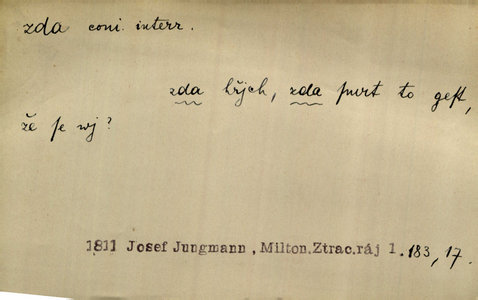 zda coni. interr.
zda hřjch, zda smrt to gest,
že se wj?
1811 Josef Jungmann, Milton.Ztrac.ráj 1. 183, 17.